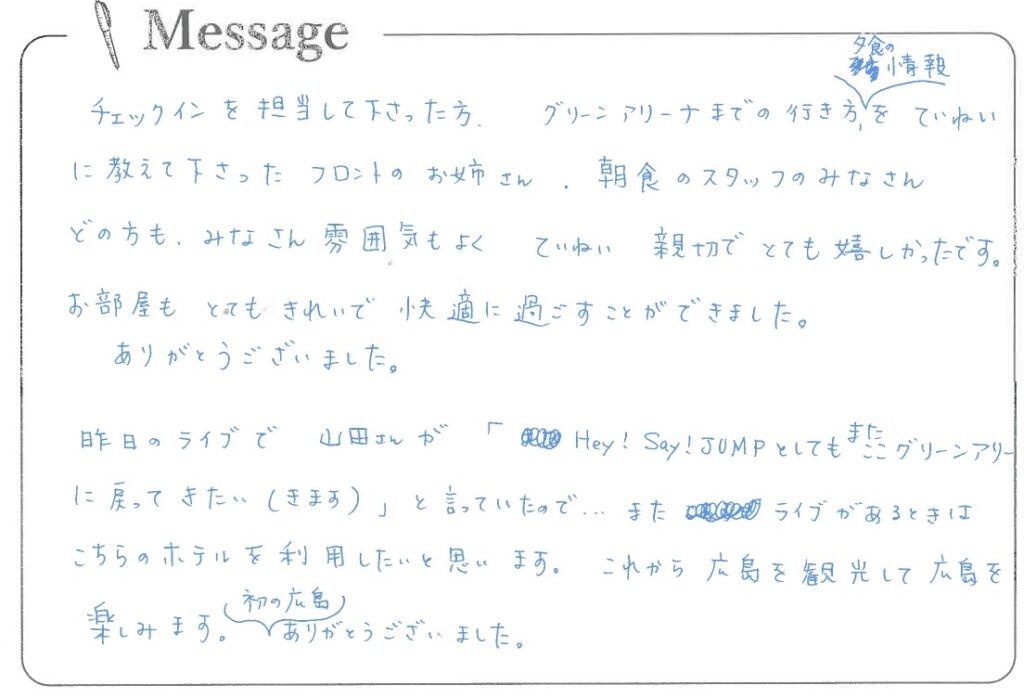 Message
夕食の
情報
チェックインを担当して下さった方、 グリーンアリーナまでの行き方、を ていねい
に教えて下さった フロントの お姉さん、朝食のスタッフのみなさん
どの方も、みなさん 雰囲気もよく ていねい 親切で とても嬉しかったです。
お部屋も とても きれいで 快適に過ごすことができました。
ありがとうございました。
昨日のライブで 山田さんが「 Hey! Say! JUMPとしても またここグリーンアリー
に戻ってきたい(きます)」と言っていたので… また ライブがあるときは
こちらのホテルを利用したいと思います。 これから 広島を観光して広島を
楽しみます。 初の広島 ありがとうございました。